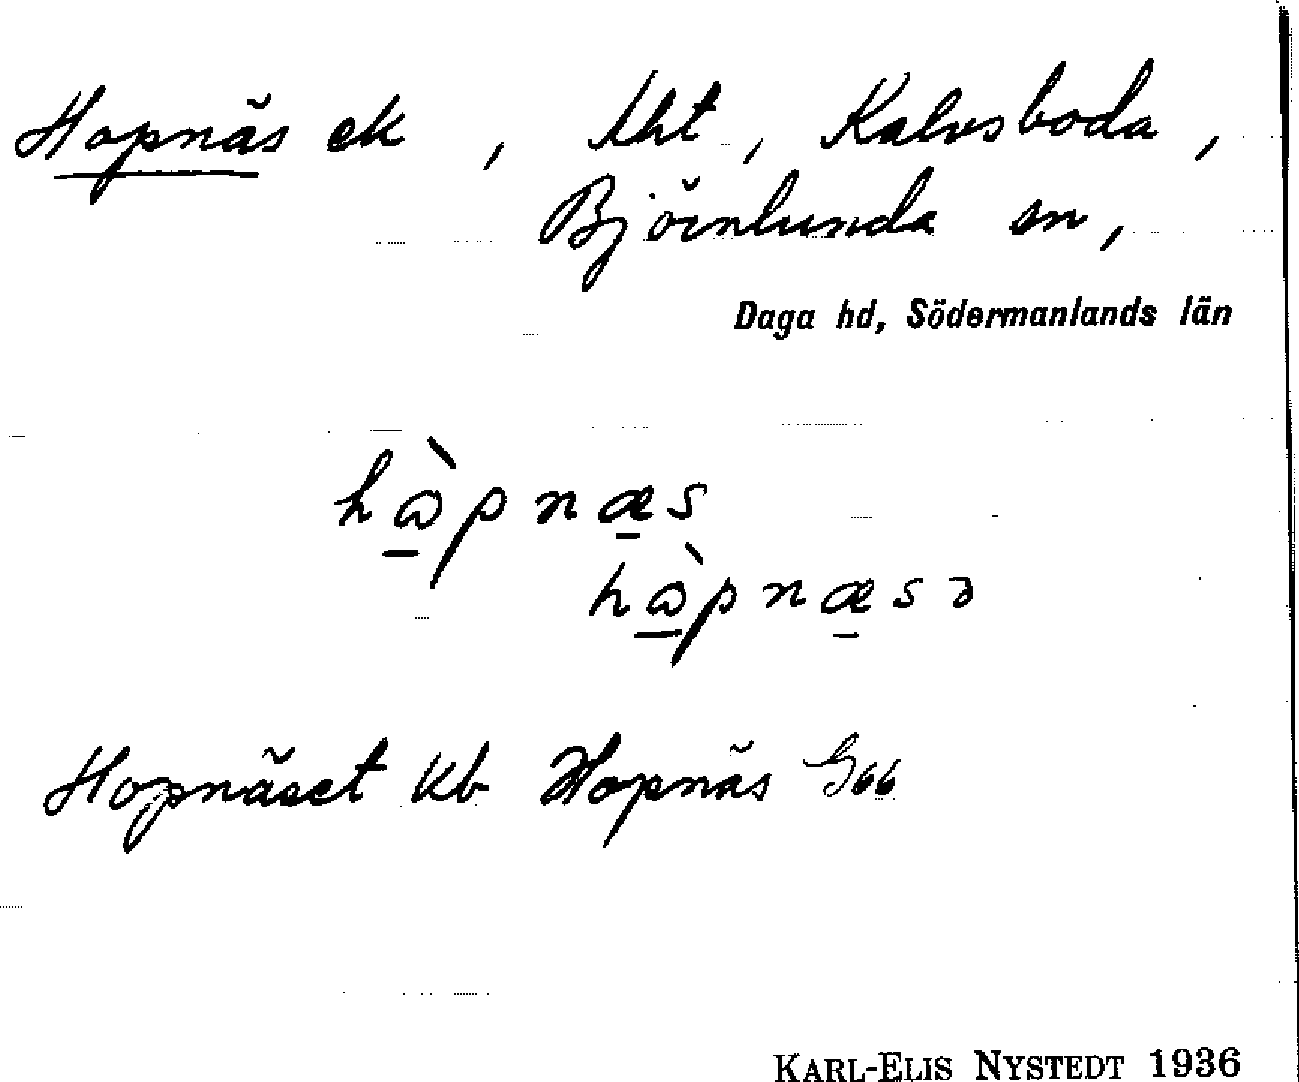 Hopnäs ek, Lht, Kalvsboda,
Björnlunda sn,
Daga hd, Södermanlands län
hɷ̀pnæs
hɷ̀pnæsə
Hopnäset kb Hopnäs G66
KARL-ELIS NYSTEDT 1936